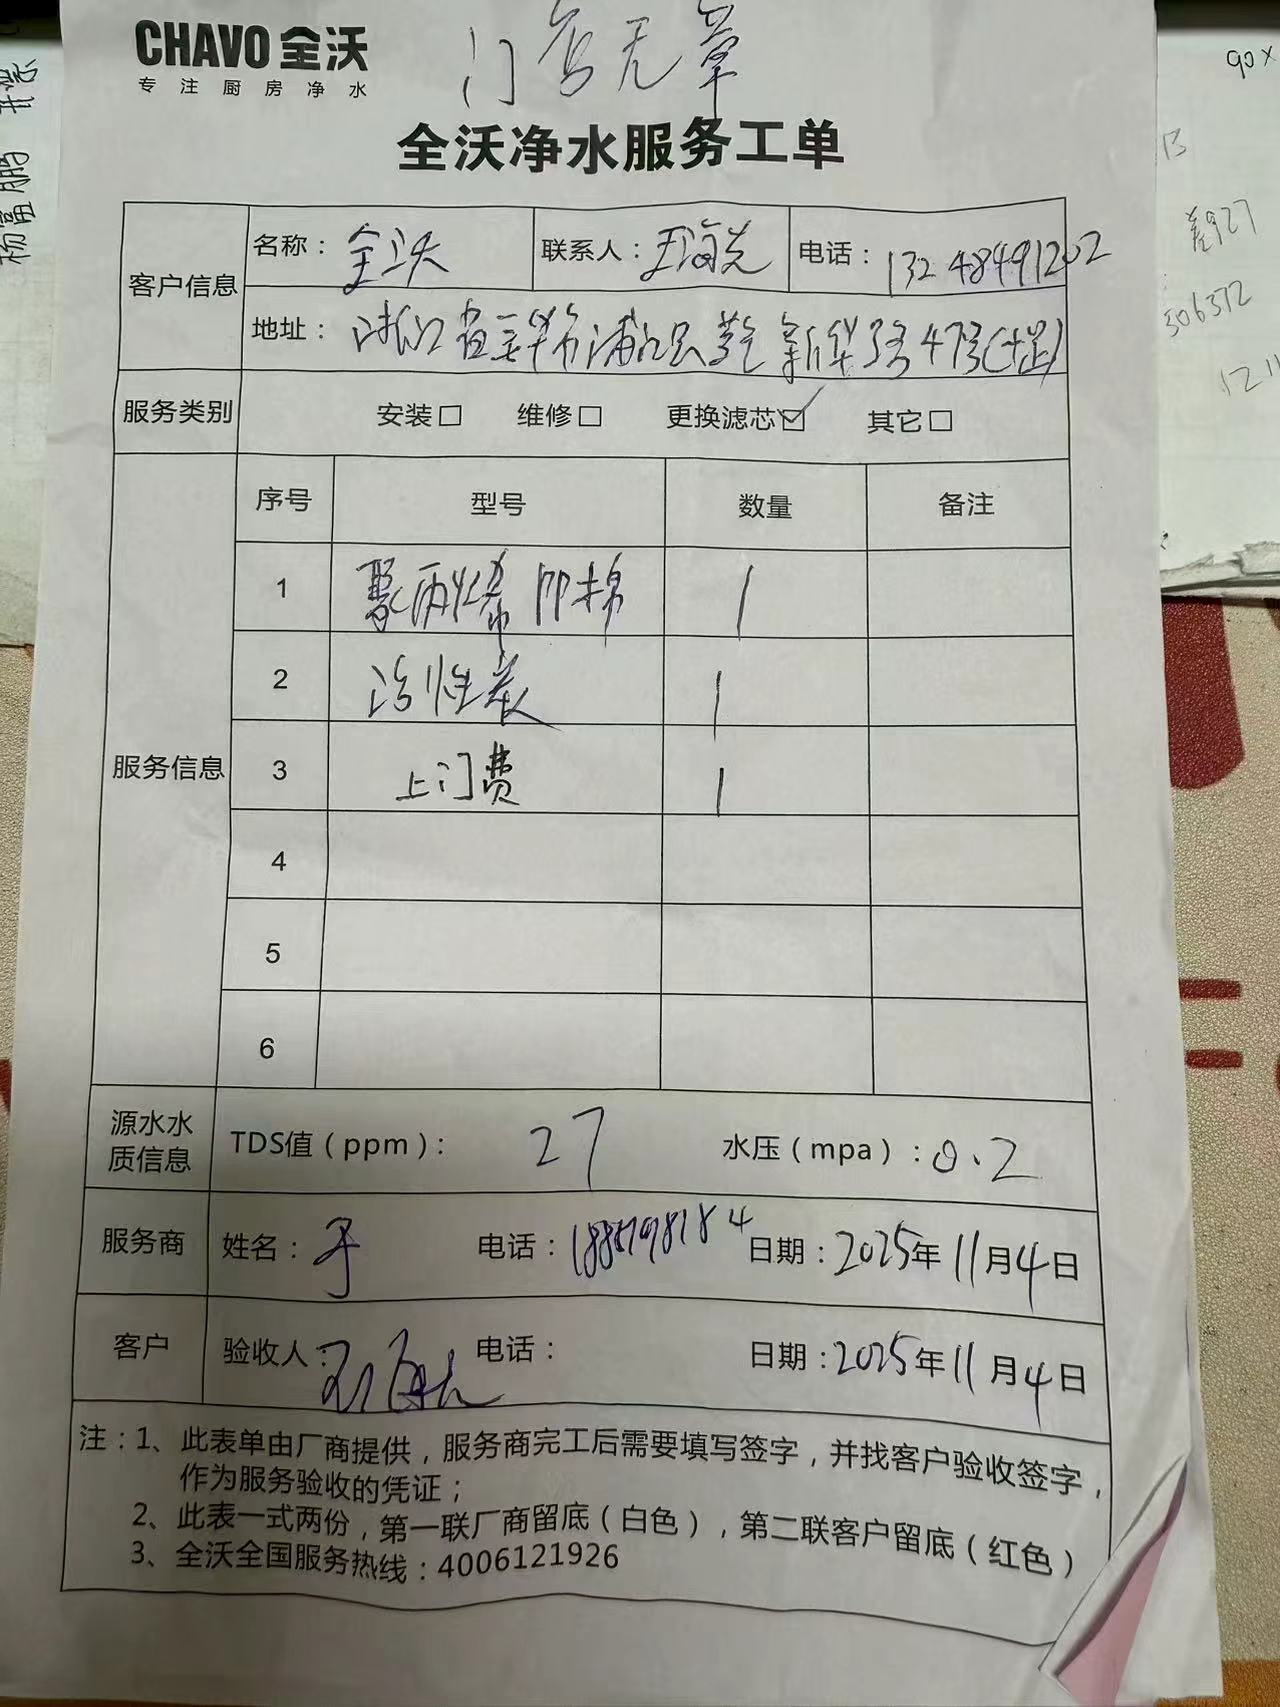 CHAVO 全沃
专注厨房净水
门店无章
全沃净水服务工单
客户信息
名称：全沃 联系人：王海芝 电话：13248491202
地址：浙江省金华市浦江县 新华路47号
服务类别 安装□ 维修□ 更换滤芯☑ 其它□
服务信息
序号 型号 数量 备注
1 聚丙烯PP棉 1
2 活性炭 1
3 上门费 1
4
5
6
源水水质信息 TDS值（ppm）：27 水压（mpa）：0.2
服务商 姓名： 电话： 日期：2025年11月4日
客户 验收人： 电话： 日期：2025年11月4日
注：1、此表单由厂商提供，服务商完工后需要填写签字，并找客户验收签字，
作为服务验收的凭证；
2、此表一式两份，第一联厂商留底（白色），第二联客户留底（红色）
3、全沃全国服务热线：4006121926
杨富鹏
90×
13
差927
506372
1211